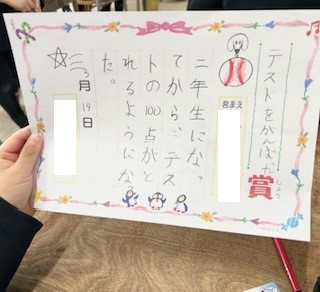 テストをがんばった
賞
しょう
名まえ
二年生になっ
てから、テス
トの100点がと
れるようにな
た。
3月19日